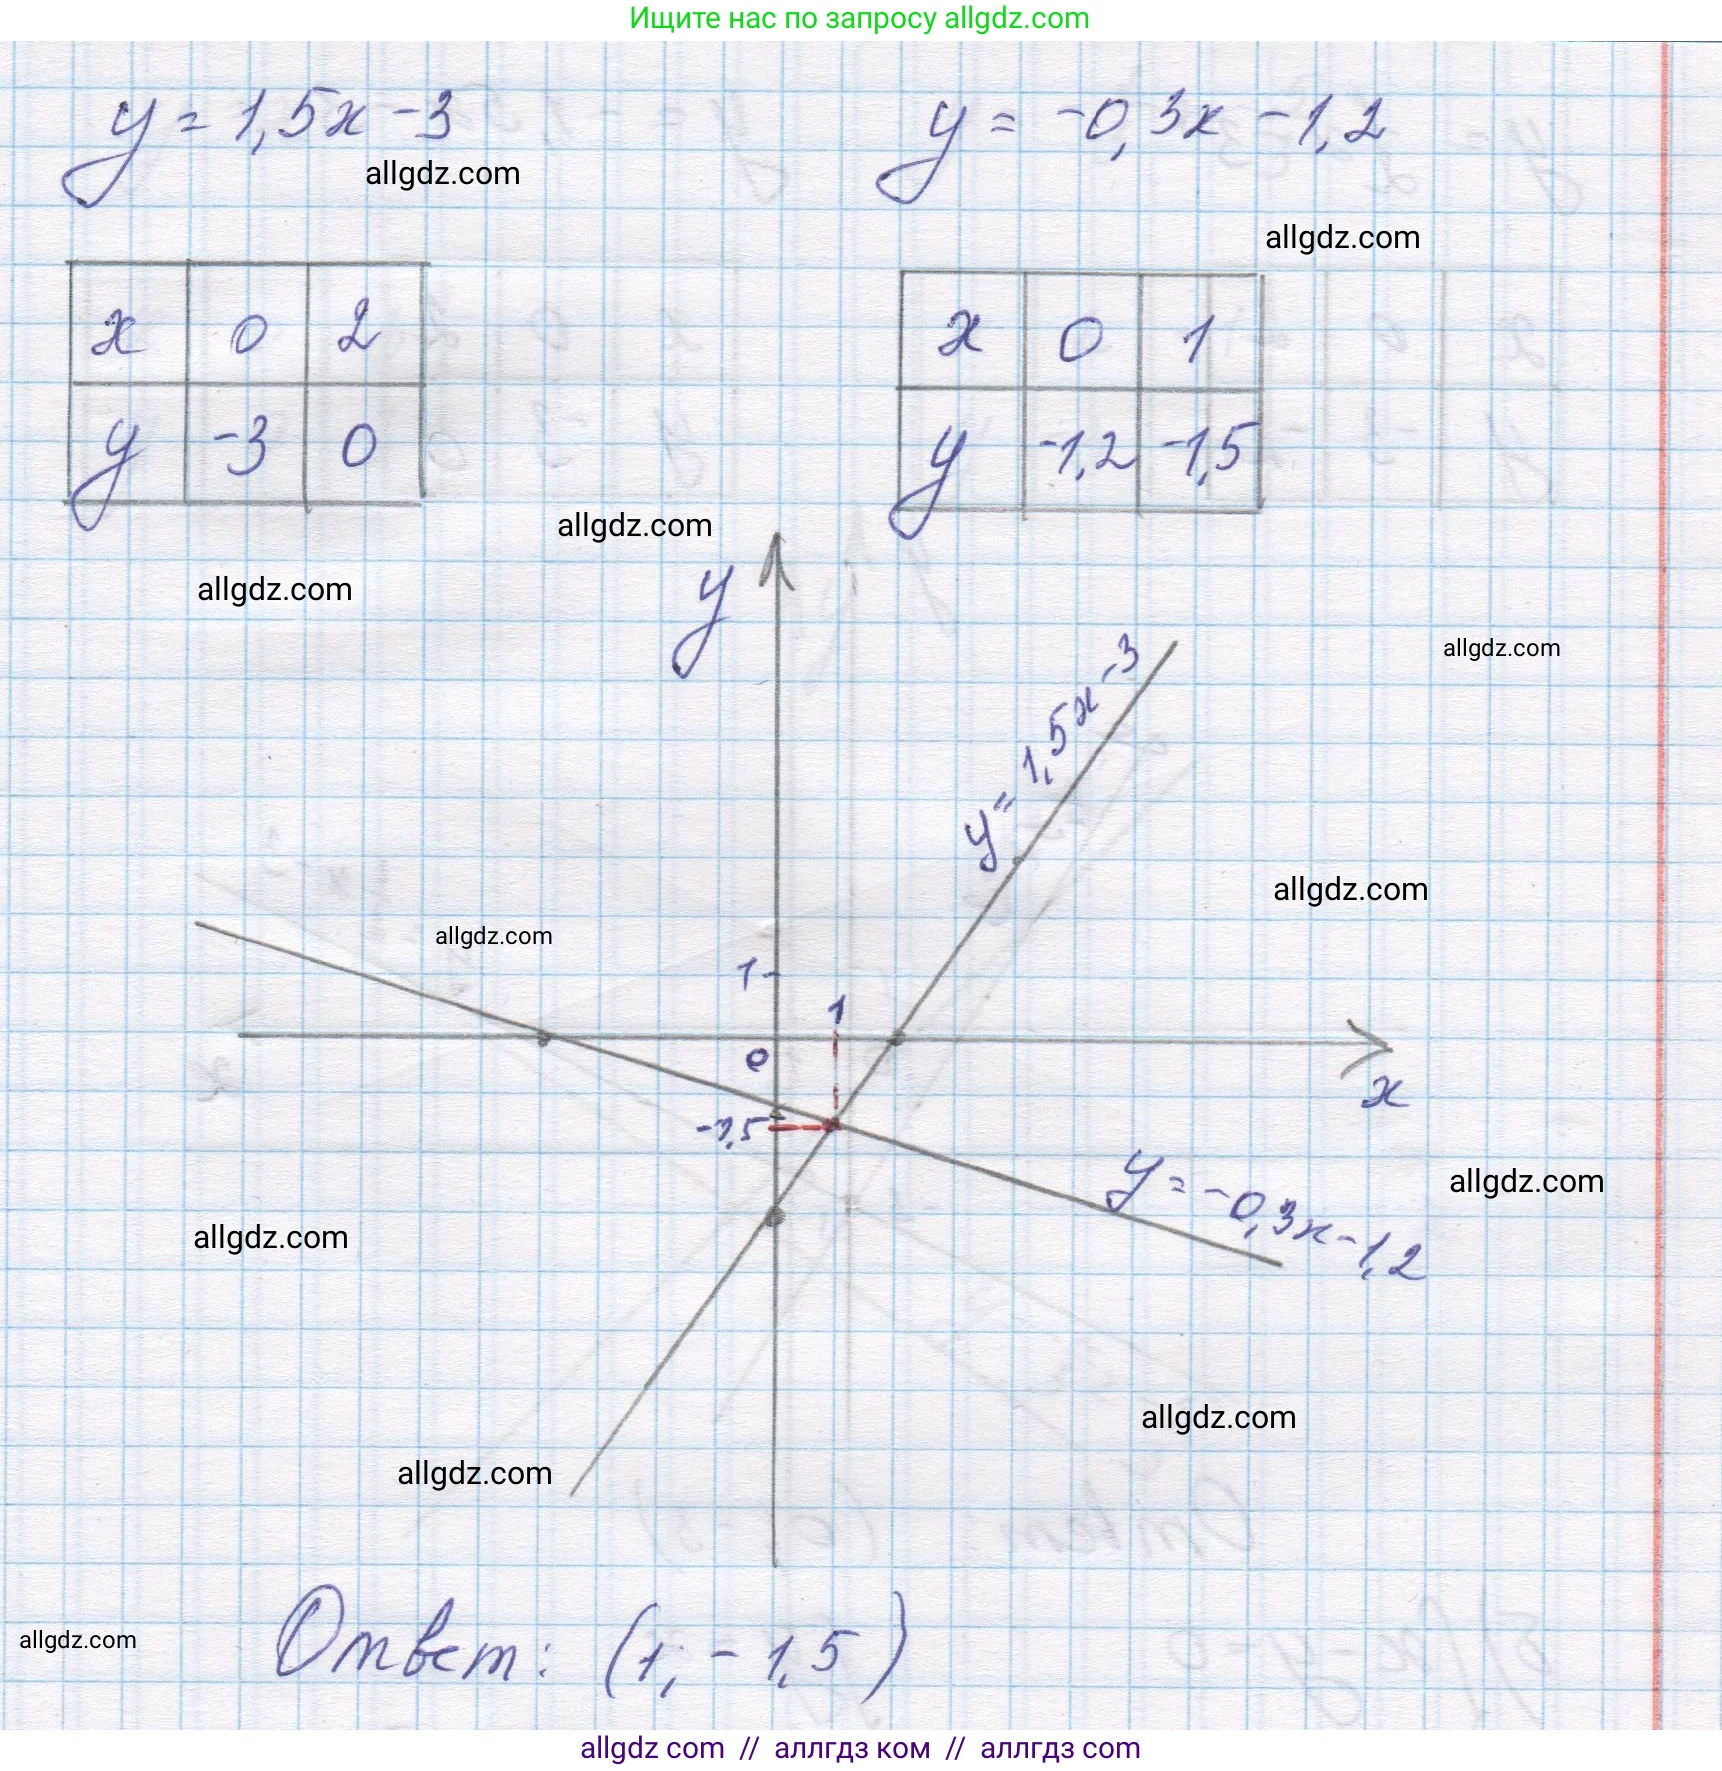 Ищите нас по запросу allgdz.com
y = 1,5x - 3
y = -0,3x - 1,2
allgdz.com
allgdz.com
x 0 2
y -3 0
x 0 1
y -1,2 -1,5
allgdz.com
allgdz.com
y
y = 1,5x - 3
allgdz.com
allgdz.com
allgdz.com
1
1
0
x
-1,5
y = -0,3x - 1,2
allgdz.com
allgdz.com
allgdz.com
allgdz.com
Ответ: (1; -1,5)
allgdz.com
allgdz com // аллгдз ком // аллгдз com